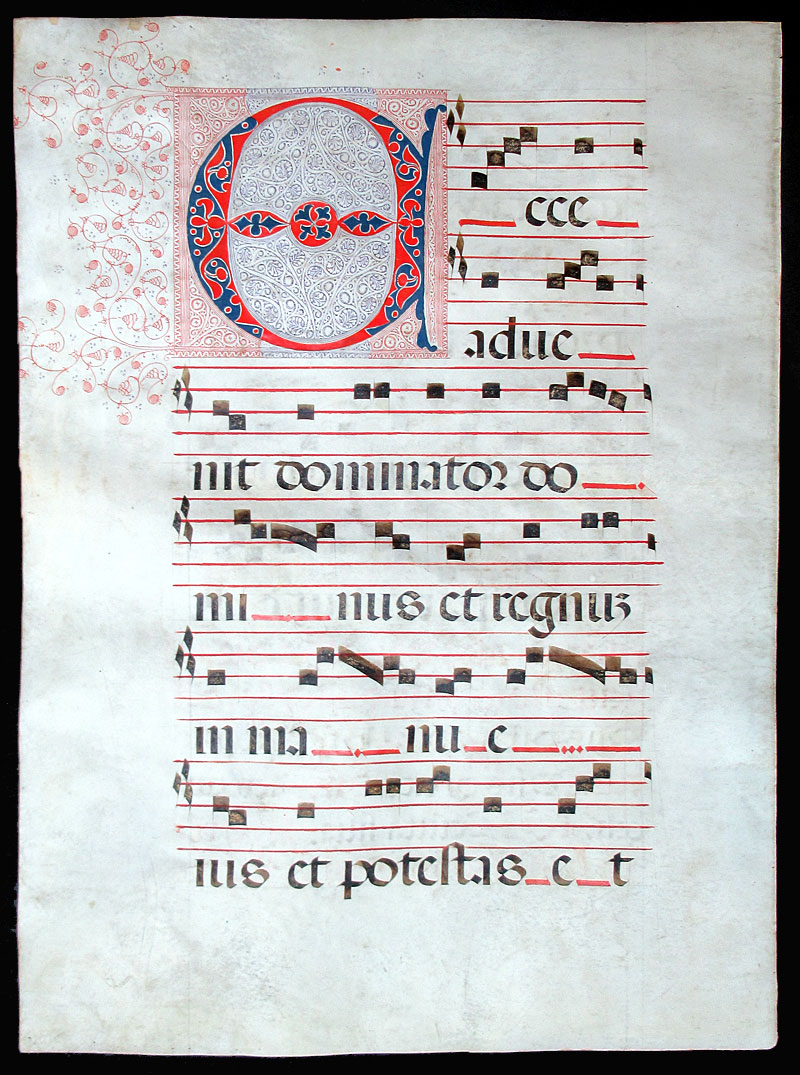 Ecce
adue
nit dominator do
mi nus et regnuz
in ma nu e
ius et poteſtas e t